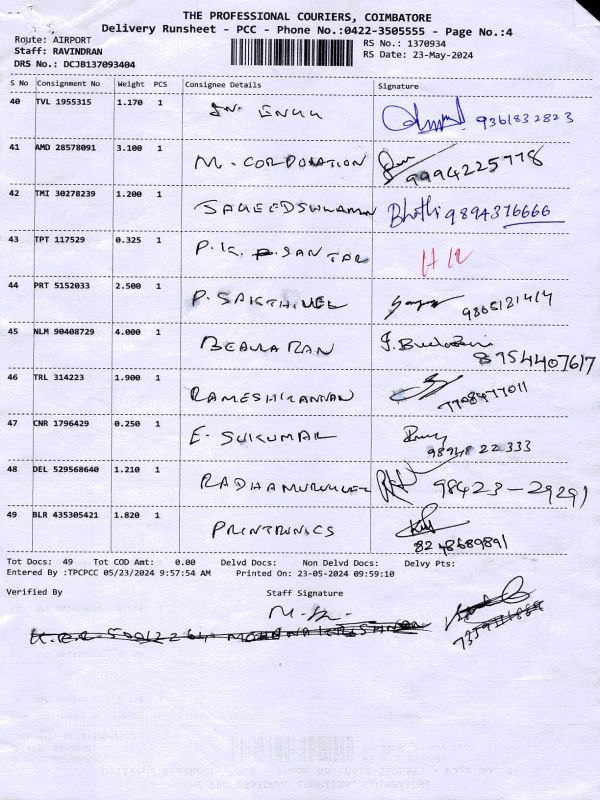 THE PROFESSIONAL COURIERS, COIMBATORE
Delivery Runsheet - PCC - Phone No.:0422-3505555 - Page No.:4
Route: AIRPORT
RS No.: 1370934
Staff: RAVINDRAN
RS Date: 23-May-2024
DRS No.: DCJB137093404
S No Consignment No Weight PCS Consignee Details Signature
40 TVL 1955315 1.170 1 9361832823
41 AMD 28578091 3.100 1 M. CORPORATION 9994225778
42 TMI 30278239 1.200 1 9894376666
43 TPT 117529 0.325 1 P.K.
44 PRT 5152033 2.500 1 P. SAKTHIVEL
45 NLM 90408729 4.000 1 8754407617
46 TRL 314223 1.900 1 RAMESHKANNAN 7708477011
47 CNR 1796429 0.250 1 E. SUKUMAR 98948 22 333
48 DEL 529568640 1.210 1 98423-29291
49 BLR 435305421 1.820 1 PRINTRONICS 8248689891
Tot Docs: 49 Tot COD Amt: 0.00 Delvd Docs: Non Delvd Docs: Delvy Pts:
Entered By :TPCPCC 05/23/2024 9:57:54 AM Printed On: 23-05-2024 09:59:10
Verified By Staff Signature